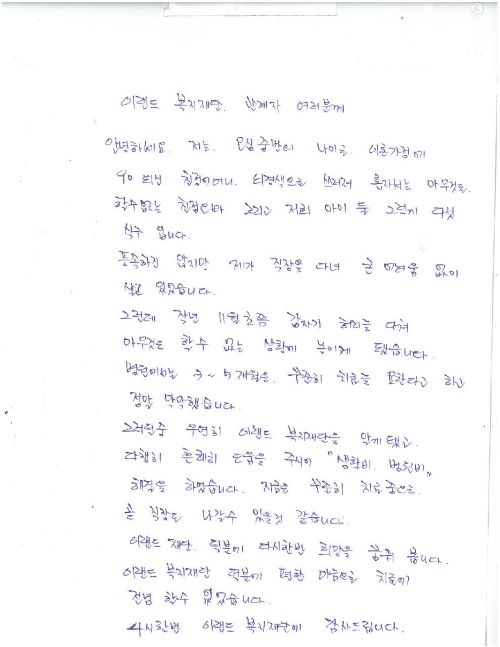 이랜드 복지재단. 관계자 여러분께
안녕하세요. 저는. 오십 중반의 나이로. 이혼가정에
90 되신 친정어머니. 뇌경색으로 쓰러져 혼자서는 아무것도.
할수없는 친정오빠 그리고 저희 아이 둘 그렇게 다섯
식구 입니다.
풍족하진 않지만 제가 직장을 다녀 큰 어려움 없이
살고 있었습니다.
그런데 작년 11월초쯤 갑자기 허리를 다쳐
아무것도 할 수 없는 상황에 놓이게 됐습니다.
병원에서는 3~5개월은. 꾸준히 치료를 요한다고 하고
정말 막막했습니다.
그러던중 우연히 이랜드 복지재단을 알게됐고.
다행히 흔쾌히 도움을 주시어 "생활비. 병원비"
해결을 하였습니다. 지금은 꾸준히 치료중으로.
곧 직장도 나갈수 있을것 같습니다.
이랜드 재단. 덕분에 다시한번 희망을 꿈꿔 봅니다.
이랜드 복지재단 덕분에 편한 마음으로 치료에
전념 할수 있었습니다.
다시한번 이랜드 복지재단에 감사드립니다.